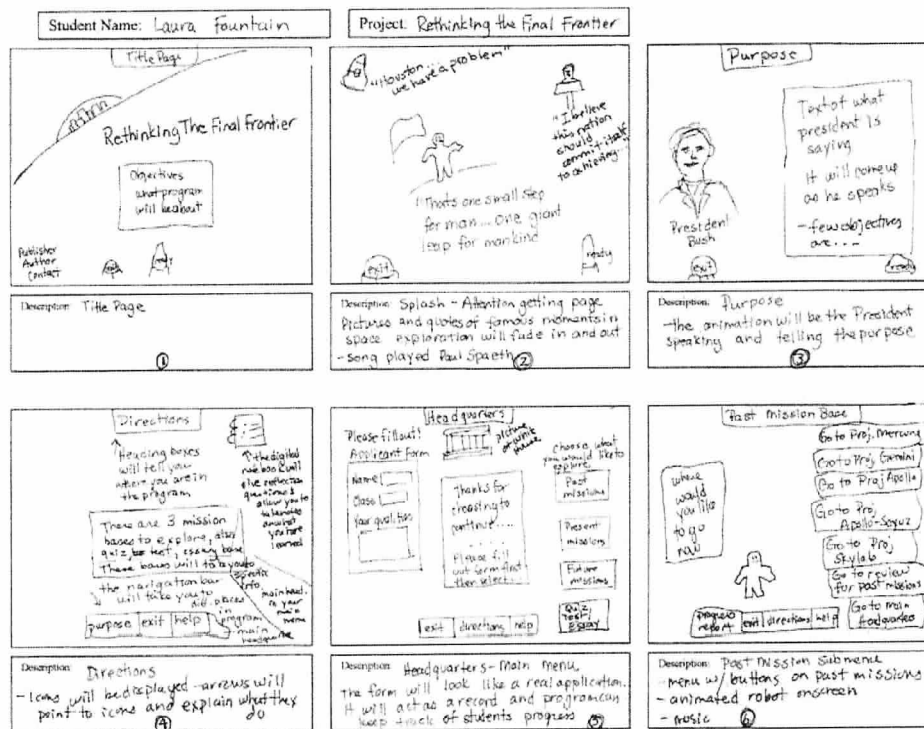 Student Name: Laura Fountain
Project: Rethinking the Final Frontier
Title Page
Rethinking The Final Frontier
Objectives
what program
will be about
Publisher
Author
Contact
exit
ready
Description: Title Page
1
"Houston...
we have a problem"
"I believe
this nation
should
commit itself
to achieving..."
"Thats one small step
for man... one giant
leap for mankind
exit
ready
Description: Splash - Attention getting page
Pictures and quotes of famous moments in
space exploration will fade in and out
- song played Paul Spaeth
2
Purpose
Text of what
president is
saying
It will come up
as he speaks
- few objectives
are...
President
Bush
exit
ready
Description: Purpose
- the animation will be the President
speaking and telling the purpose
3
Directions
Heading boxes
will tell you
where you are in
the program
the digital
notebook will
give reflection
questions &
allow you to
take notes
on what
you have
learned
There are 3 mission
bases to explore, also
quiz, test, essay base
These boxes will take you to
specific
info.
the navigation bar
will take you to
diff. places
in
program
main
headquarters
main head.
is your
main
menu
purpose exit help
Description: Directions
- Icons will be displayed - arrows will
point to icons and explain what they
do
4
Headquarters
Please fill out!
Applicant Form
Name
Class
Your qualities
picture
of white
house
Thanks for
choosing to
continue.....
Please fill
out form first
then select...
choose what
you would like to
explore
Past
missions
Present
missions
Future
missions
Quiz,
Test,
Essay
exit directions help
Description: Headquarters - Main menu
The form will look like a real application.
It will act as a record and program can
keep track of students progress
5
Past Mission Base
where
would
you like
to go
now
Go to Proj. Mercury
Go to Proj Gemini
Go to Proj Apollo
Go to Proj
Apollo-Soyuz
Go to Proj
Skylab
Go to review
for past missions
Go to Main
Headquarters
progress
report
exit directions help
Description: Past Mission Submenu
- menu w/ buttons on past missions
- animated robot onscreen
- music
6